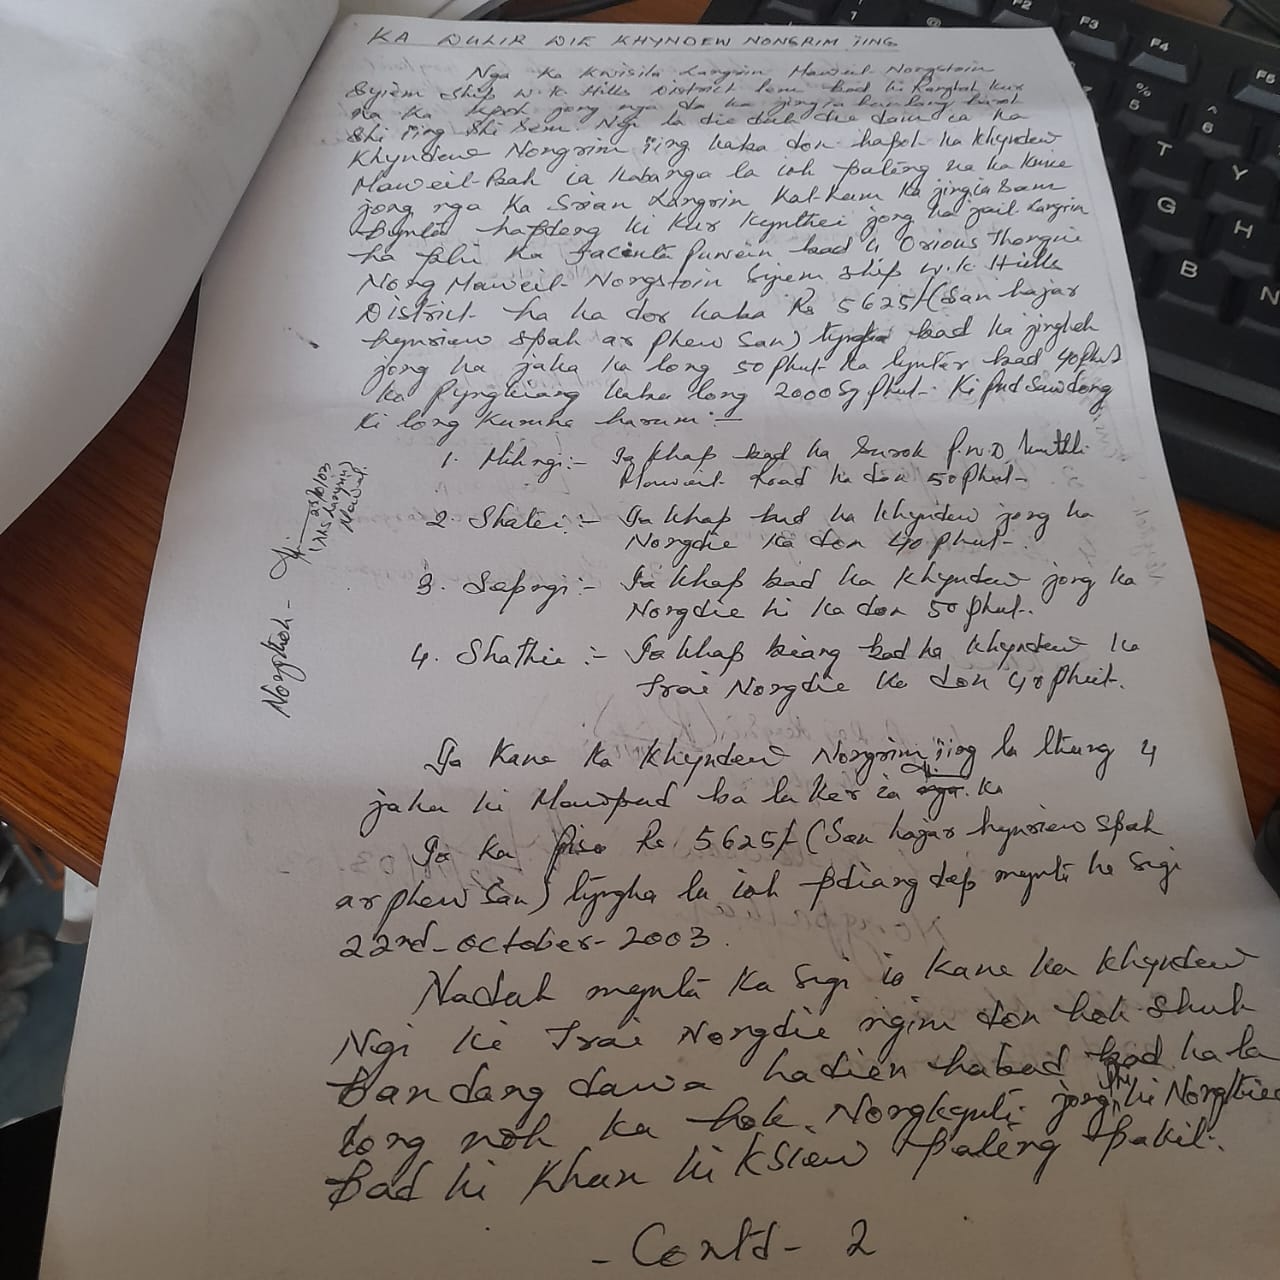 KA DULIR DIE KHYNDEW NONGRIM ÏING
Nga Ka Krisila Langrin Maweit Nongstoin
Syiem Ship W.K Hills District lem bad ki Rangbah Kur
na ka kpoh jong nga da ka jingia
Shi ïing Shi Sem. Ngi la die dut die dam ia ka
Khyndew Nongrim ïing kaba don hapoh ka khyndew
Maweit-Bah ia kaba nga la ioh pateng na ka kmie
jong nga Ka Srian Langrin Kat kum ka jingia sam
Bynta hapdeng ki kur kynthei jong ka jait Langrin
ha phi Ka Jacinta Puwein bad U Orious Thongni
Nong Maweit- Nongstoin Syiem Ship W.K Hills
District ha ka dor kaba Rs 5625/- (San hajar
hynriew spah ar phew san) tyngka bad ka jingheh
jong ka jaka ka long 50 phut ka lynter bad 40 phut
ka Pyngkiang kaba long 2000 Sq phut. Ki pud sawdong
ki long kumne harum :-
1. Mihngi:- Ia khap bad ka Surok P.W.D
Maweit Road ka don 50 phut-
2. Shatei:- Ia khap bad ka khyndew jong ka
Nongdie ka don 40 phut-.
3. Sepngi:- Ia khap bad ka khyndew jong ka
Nongdie hi ka don 50 phut-.
4. Shathie:- Ia khap biang bad ka khyndew ka
Trai Nongdie ka don 40 phut.
Nongthoh -
22/10/03
Maweit
Ia Kane ka khyndew Nongrim ïing la thung 4
jaka ki Mawpud ba la ker ia ka
Ia Ka pisa Rs 5625/- (San hajar hynriew spah
ar phew san) tyngka la ioh pdiang dep mynta ka sngi
22nd-October-2003.
Naduh mynta ka sngi ia kane ka khyndew
Ngi ki Trai Nongdie ngim don hok shuh
ban dang dawa hadien habud bad ka la
long noh ka hok Nongkynti jong phi ki Nongthied
bad ki khun ki ksiew pateng pakit.
- Contd- 2